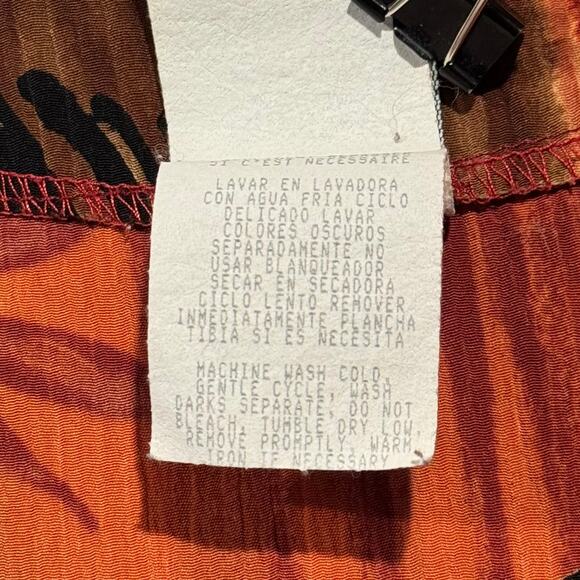 SI C'EST NECESSAIRE
LAVAR EN LAVADORA
CON AGUA FRIA CICLO
DELICADO LAVAR
COLORES OSCUROS
SEPARADAMENTE NO
USAR BLANQUEADOR
SECAR EN SECADORA
CICLO LENTO REMOVER
INMEDIATAMENTE PLANCHA
TIBIA SI ES NECESITA
MACHINE WASH COLD,
GENTLE CYCLE, WASH
DARKS SEPARATE, DO NOT
BLEACH, TUMBLE DRY LOW,
REMOVE PROMPTLY, WARM
IRON IF NECESSARY